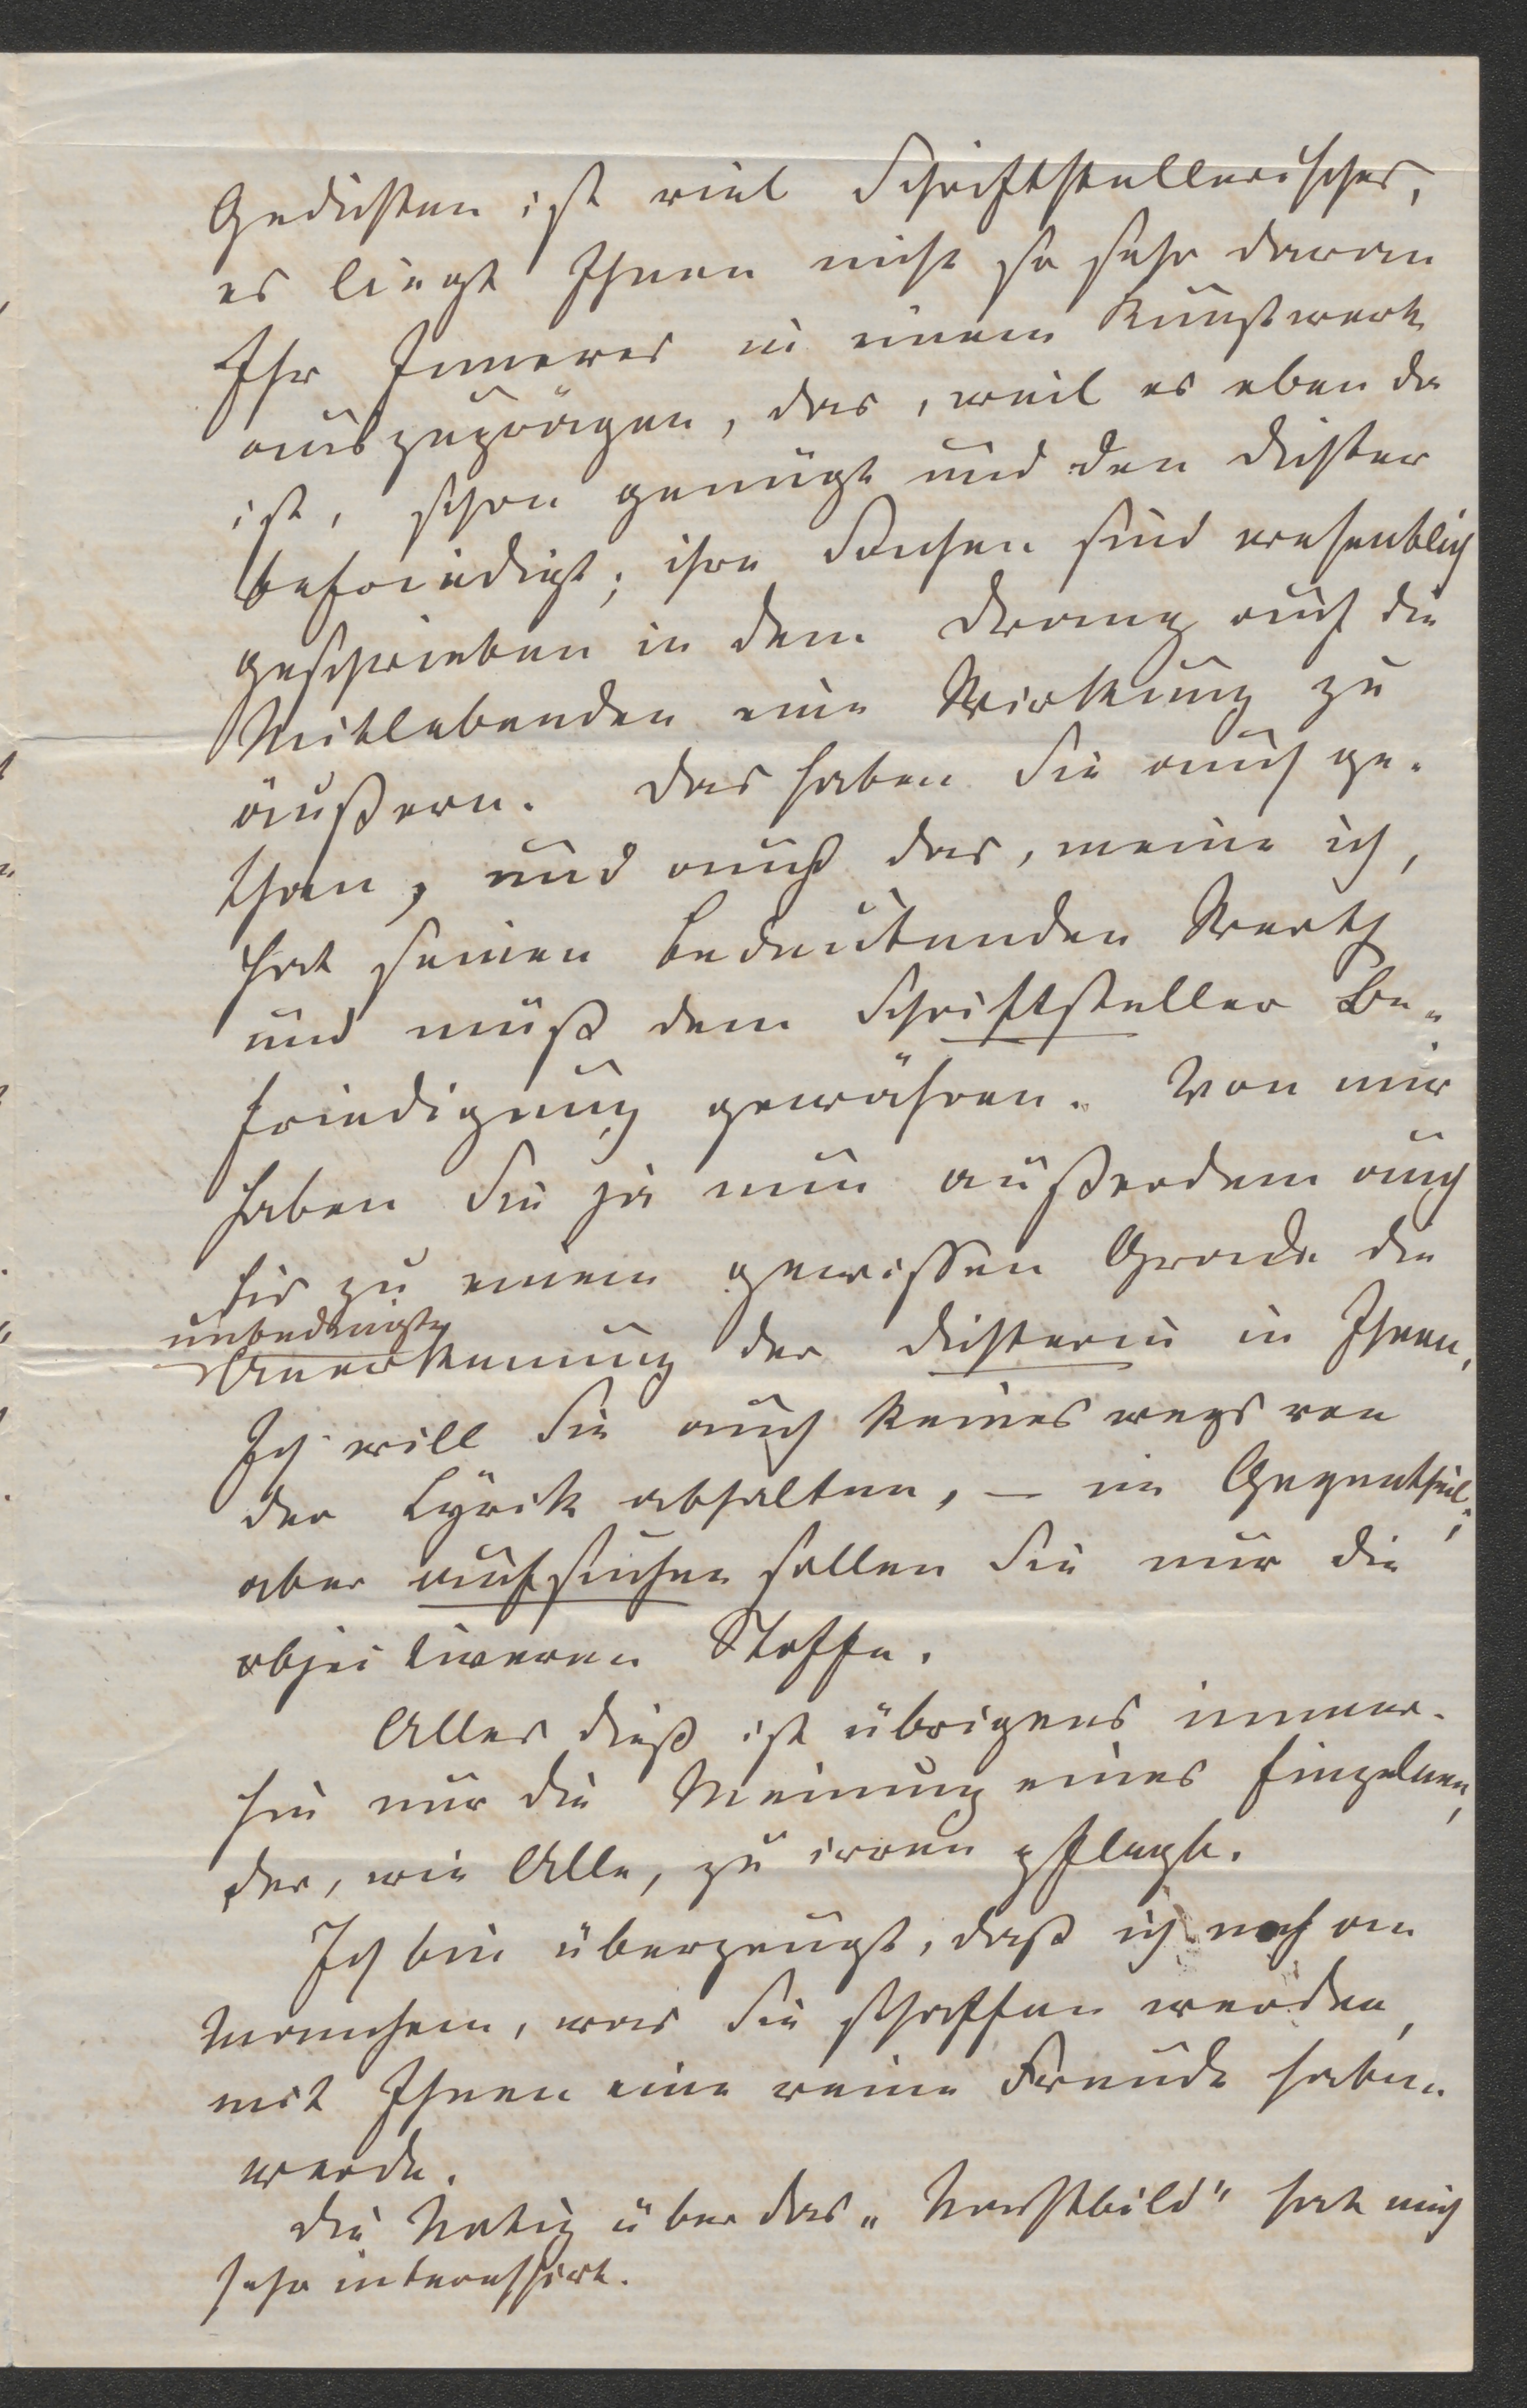 Gedichten ist viel Schriftstellerisches,
es liegt Ihnen nicht so sehr daran
Ihr Inneres in einem Kunstwerk
auszuprägen, das, weil es eben da
ist, schon genügt und den Dichter
befriedigt; ihre Sachen sind wesentlich
geschrieben in dem Drang auf die
Mitlebenden eine Wirkung zu
äußern. Das haben Sie auch ge-
than, und auch das, meine ich,
hat seinen bedeutenden Werth
und muß dem Schriftsteller Be-
friedigung gewähren. Von mir
haben Sie ja nun außerdem auch
bis zu einem gewissen Grade die
unbedingte
Anerkennung der Dichterin in Ihnen,
Ich will Sie auch keineswegs von
der Lÿrik abhalten, – im Gegentheil;
aber aufsuchen sollen Sie nur die
objectiveren Stoffe.
Alles dieß ist übrigens immer-
hin nur die Meinung eines Einzelnen,
der, wie Alle, zu irren pflegt.
Ich bin überzeugt, daß ich noch an
Manchem, was Sie schaffen werden,
mit Ihnen eine reine Freude haben
werde.
Die Notiz über das „Nachtbild" hat mich
sehr interessirt.